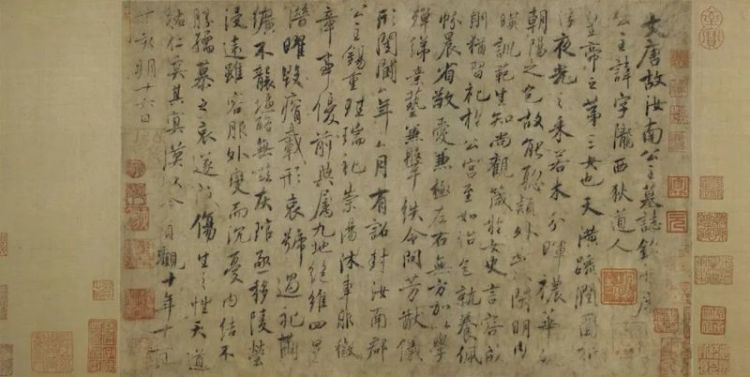 大唐故汝南公主墓誌銘并序
公主諱字隴西狄道人
皇帝之第三女也天潢疏潤圓折
浮夜光之采若木分暉穠華照
朝陽之色故能聰穎外發閑明內
暎訓範生知尚觀箴於女史言容成
則猶習礼於公宮至如怡色就養佩
帉晨省敬愛兼極左右無方加以學
殫綈素藝兼鞶紩令問芳猷儀
形閨閫年月有詔封汝南郡
公主錫重珪瑞礼崇湯沐車服徽
章事優前典屬九地絕維四星
潛曜毀瘠載形哀號過礼繭
纊不襲鹽酪無嗞灰琯亟移陵塋
浸遠雖容服外變而沉憂內結不
勝孺慕之哀遂成傷生之性天道
祐仁奚其冥漠以今貞觀十年十一月
丁亥朔十六日